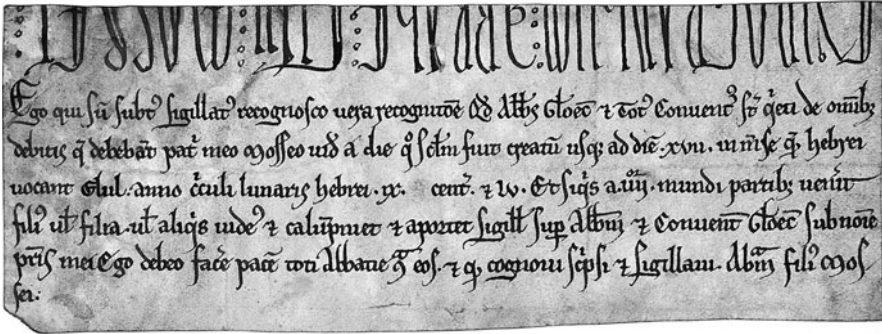 Ego qui sū subt' sigillat' recognosco uera recognitōe qđ Abbs Gloec̄ ⁊ Tot' Conuent' st̄ q̄eti de omībꝫ
debitis q̄ debebāt pat̄ meo Mosseo iud̄ a die qͦ sc̄lm fuit creatū usqꝫ ad diē .xvii. in m̄se q̄ hebrei
uocant Elul. anno c̄culi lunaris hebrei .ix. cent̄. ⁊ lv. Et siq̄s a .iiii. mundi partibꝫ uen̄it
fili' ul̄ filia. ul̄ aliq̄s iude' ⁊ calūpniet ⁊ aportet sigill̄ sup Abb̄m ⁊ Conuent̄ Gloec̄ sub noīe
pr̄is mei Ego debeo fac̄e pacē toti Abbatie q̄ eos. ⁊ qꝫ cognoui sc̄psi ⁊ sigillaui. Abm̄ fili' Mos
sei.